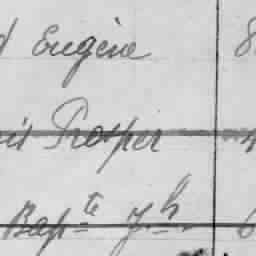 d Eugène 8
is Prosper
Bapte Jh 6